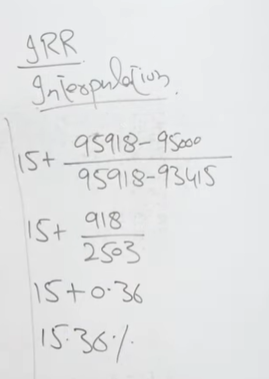 IRR
Interpulation.
15+ 95918-95000
95918-93415
15+ 918
2503
15+0.36
15.36%